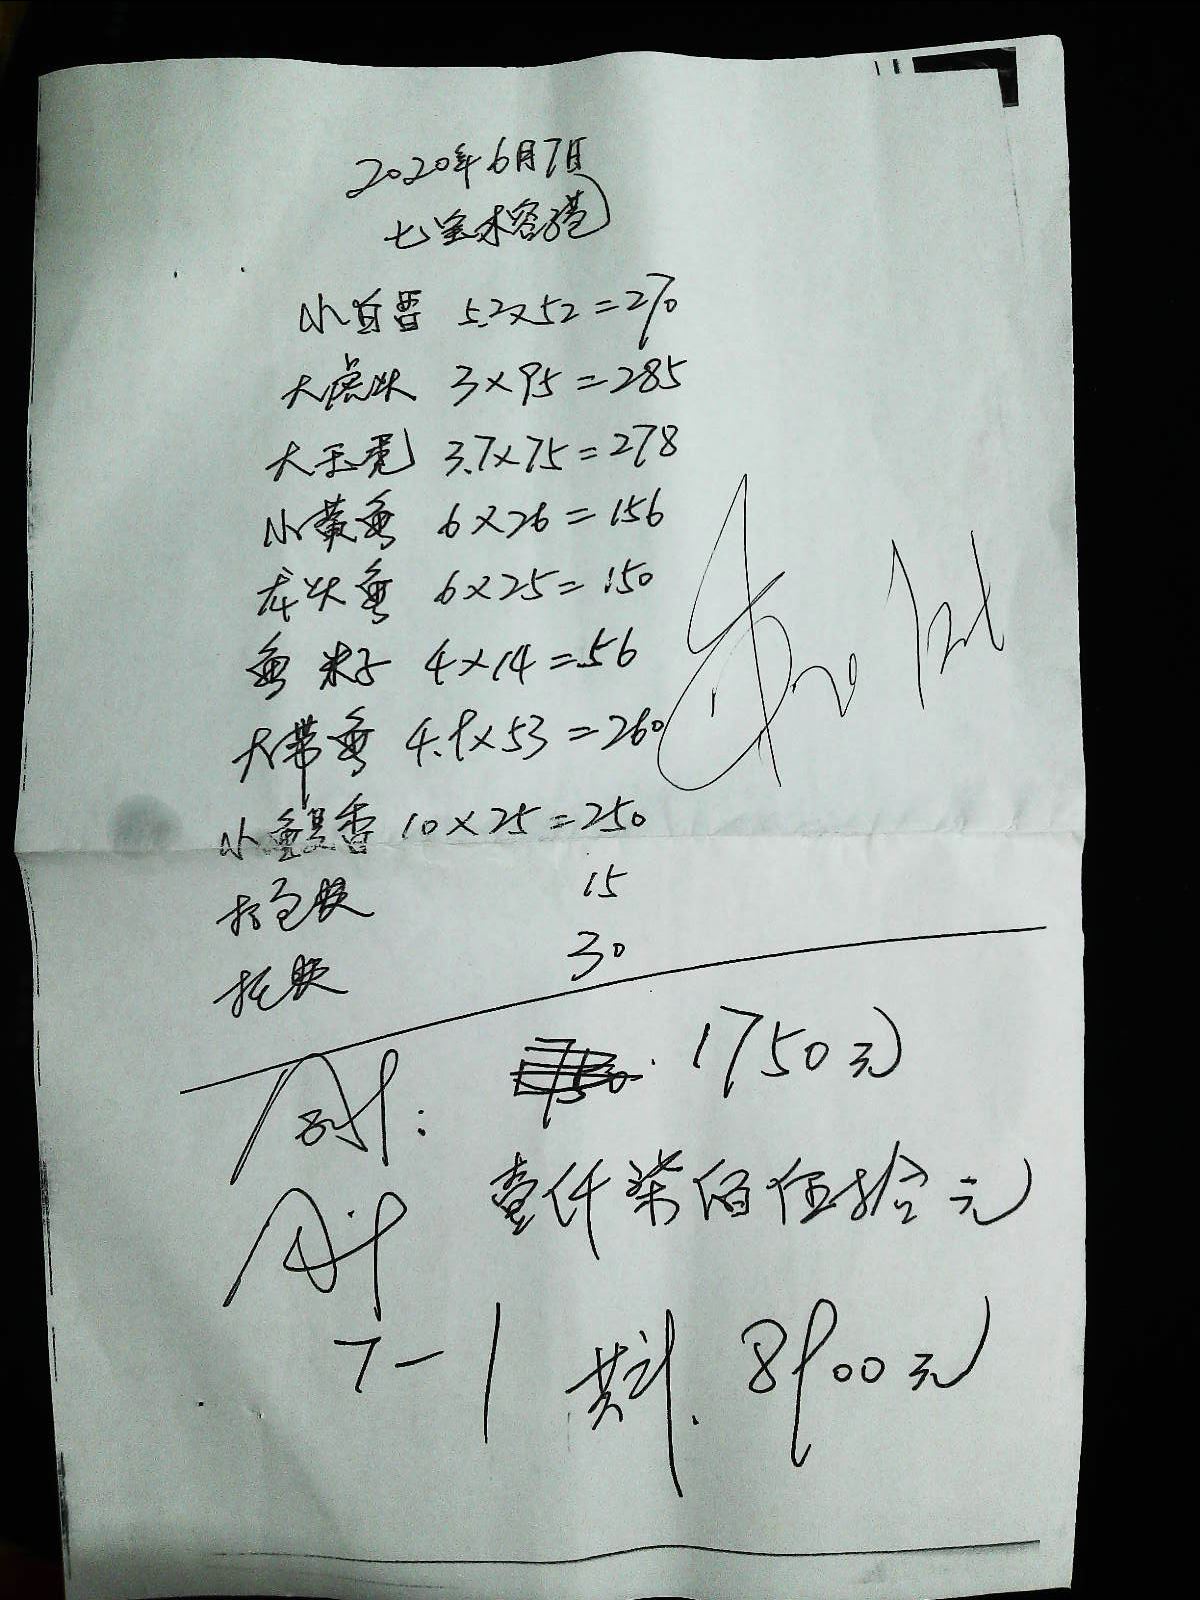 2020年6月7日
七宝木容港
小白雷 5.2×52=270
大虎头 3×95=285
大玉秃 3.7×75=278
小黄鱼 6×26=156
龙头鱼 6×25=150
鱼米子 4×14=56
大带鱼 4.9×53=260
小鲳香 10×25=250
打包胶 15
托胶 30
合计: 1750元
壹仟柒佰伍拾元
合计
7-1 共计. 8900元